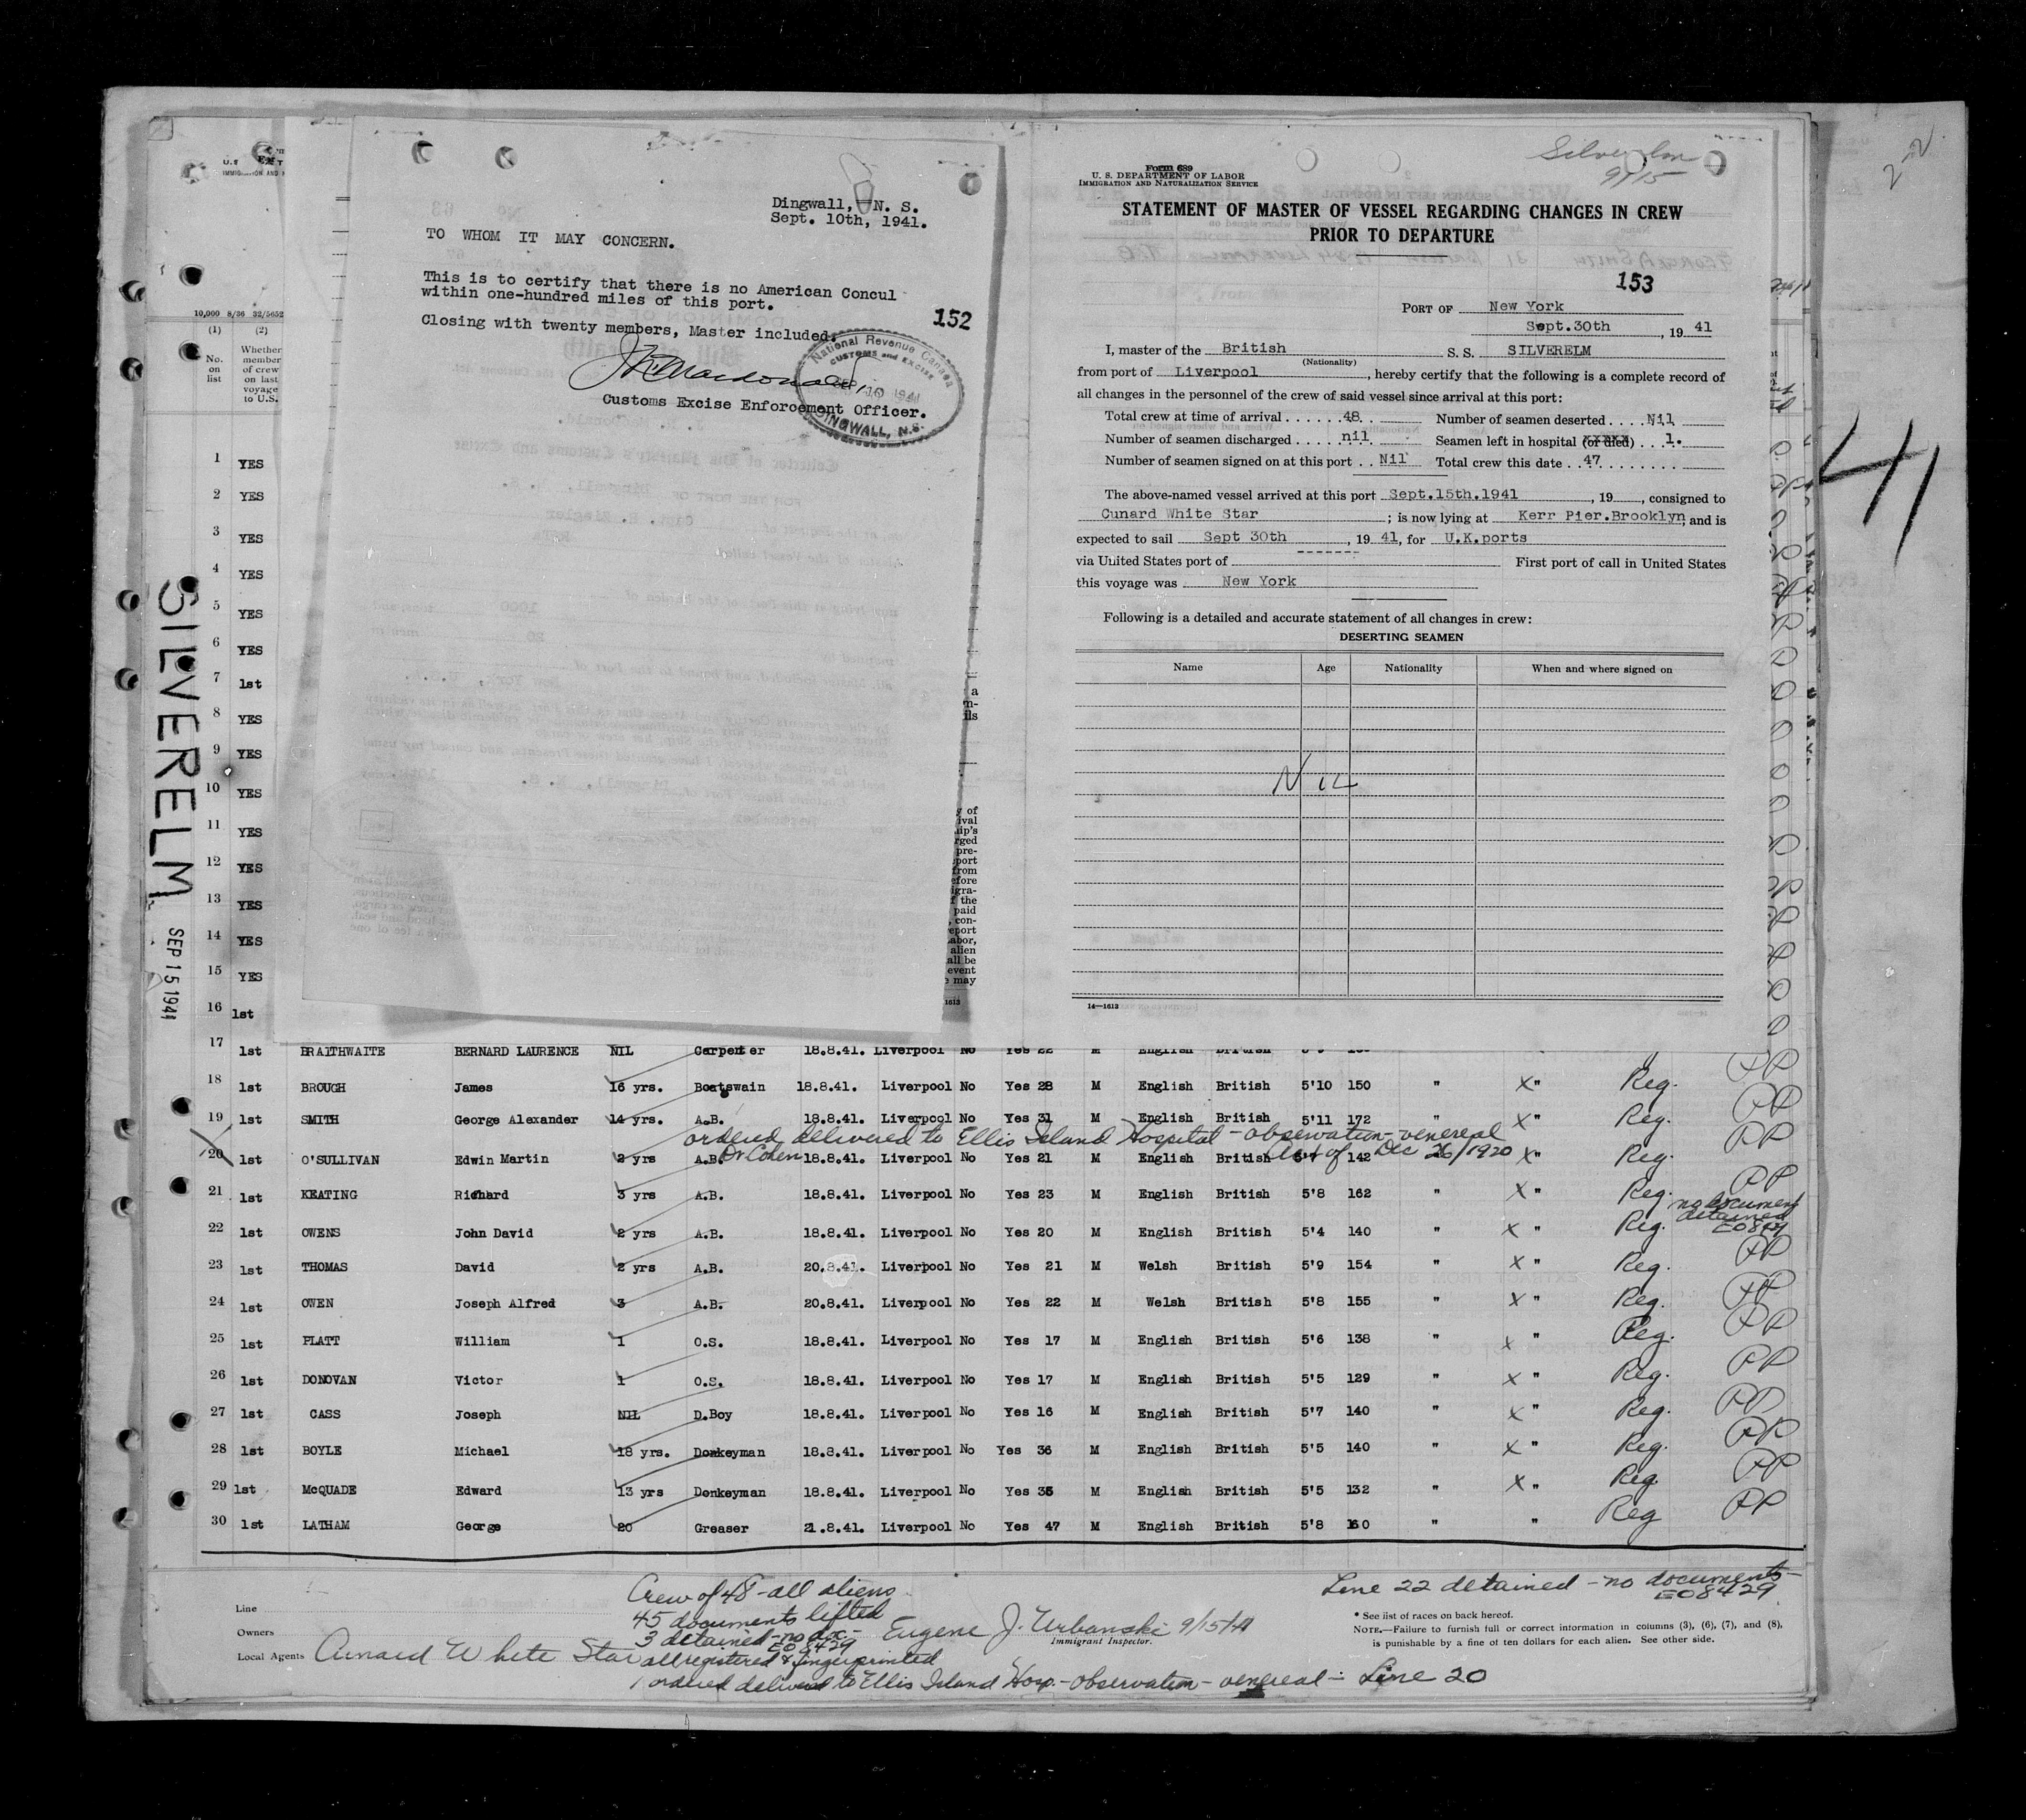 Dingwall, N. S.
Sept. 10th, 1941.
TO WHOM IT MAY CONCERN.
This is to certify that there is no American Concul
within one-hundred miles of this port.
152
Closing with twenty members, Master included.
National Revenue Canada
CUSTOMS and EXCISE
1941
DINGWALL, N.S.
Customs Excise Enforcement Officer.
Silverelm
9/15
Form 689
U. S. DEPARTMENT OF LABOR
IMMIGRATION AND NATURALIZATION SERVICE
STATEMENT OF MASTER OF VESSEL REGARDING CHANGES IN CREW
PRIOR TO DEPARTURE
153
PORT OF New York
Sept.30th , 19 41
I, master of the British S. S. SILVERELM
(Nationality)
from port of Liverpool , hereby certify that the following is a complete record of
all changes in the personnel of the crew of said vessel since arrival at this port:
Total crew at time of arrival ...... 48. Number of seamen deserted .... Nil
Number of seamen discharged ..... nil Seamen left in hospital (or died) . . 1.
Number of seamen signed on at this port . . Nil Total crew this date . . 47
The above-named vessel arrived at this port Sept.15th.1941 , 19 , consigned to
Cunard White Star ; is now lying at Kerr Pier.Brooklyn, and is
expected to sail Sept 30th , 19 41, for U.K.ports
via United States port of ------- First port of call in United States
this voyage was New York
Following is a detailed and accurate statement of all changes in crew:
DESERTING SEAMEN
Name Age Nationality When and where signed on
Nil
14—1613
22
41
SILVERELM
SEP 15 1941
10,000 8/36 32/5652
(1) (2)
No. on list
Whether member of crew on last voyage to U.S.
1 YES
2 YES
3 YES
4 YES
5 YES
6 YES
7 1st
8 YES
9 YES
10 YES
11 YES
12 YES
13 YES
14 YES
15 YES
16 1st
17 1st BRAITHWAITE BERNARD LAURENCE NIL Carpenter 18.8.41. Liverpool No Yes 22 M English British
18 1st BROUGH James 16 yrs. Boatswain 18.8.41. Liverpool No Yes 28 M English British 5'10 150 " X " Reg. PP
19 1st SMITH George Alexander 14 yrs. A.B. 18.8.41. Liverpool No Yes 31 M English British 5'11 172 " X " Reg. PP
ordered delivered to Ellis Island Hospital - observation - venereal
Dr Cohen Act of Dec 26/1920
20 1st O'SULLIVAN Edwin Martin 2 yrs A.B. 18.8.41. Liverpool No Yes 21 M English British 142 X " Reg. PP
21 1st KEATING Richard 3 yrs A.B. 18.8.41. Liverpool No Yes 23 M English British 5'8 162 " X " Reg. PP
no document
detained
EO8429
22 1st OWENS John David 2 yrs A.B. 18.8.41. Liverpool No Yes 20 M English British 5'4 140 " X " Reg.
23 1st THOMAS David 2 yrs A.B. 20.8.41. Liverpool No Yes 21 M Welsh British 5'9 154 " X " Reg. PP
24 1st OWEN Joseph Alfred 3 A.B. 20.8.41. Liverpool No Yes 22 M Welsh British 5'8 155 " X " Reg. PP
25 1st PLATT William 1 O.S. 18.8.41. Liverpool No Yes 17 M English British 5'6 138 " X " Reg. PP
26 1st DONOVAN Victor 1 O.S. 18.8.41. Liverpool No Yes 17 M English British 5'5 129 " X " Reg. PP
27 1st CASS Joseph NIL D.Boy 18.8.41. Liverpool No Yes 16 M English British 5'7 140 " X " Reg. PP
28 1st BOYLE Michael 18 yrs. Donkeyman 18.8.41. Liverpool No Yes 36 M English British 5'5 140 " X " Reg. PP
29 1st McQUADE Edward 13 yrs Donkeyman 18.8.41. Liverpool No Yes 35 M English British 5'5 132 " X " Reg. PP
30 1st LATHAM George 20 Greaser 21.8.41. Liverpool No Yes 47 M English British 5'8 160 " " Reg PP
Crew of 48 - all aliens
45 documents lifted
3 detained - no doc -
EO 8429
all registered & fingerprinted
1 ordered delivered to Ellis Island Hosp. - observation - venereal - Line 20
Line
Owners
Local Agents Cunard White Star
Eugene J. Urbanski 9/15/41
Immigrant Inspector.
Line 22 detained - no documents -
EO8429
* See list of races on back hereof.
NOTE.—Failure to furnish full or correct information in columns (3), (6), (7), and (8),
is punishable by a fine of ten dollars for each alien. See other side.